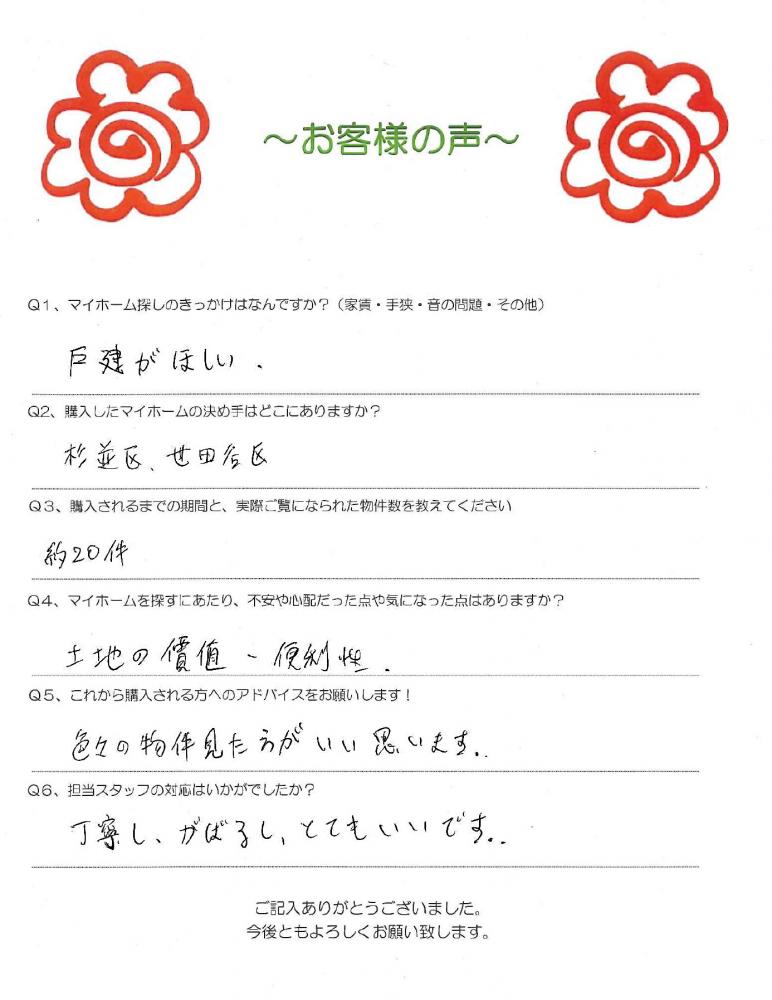 ～お客様の声～
Q1、マイホーム探しのきっかけはなんですか？（家賃・手狭・音の問題・その他）
戸建がほしい．
Q2、購入したマイホームの決め手はどこにありますか？
杉並区、世田谷区
Q3、購入されるまでの期間と、実際ご覧になられた物件数を教えてください
約20件
Q4、マイホームを探すにあたり、不安や心配だった点や気になった点はありますか？
土地の價值、便利性．
Q5、これから購入される方へのアドバイスをお願いします！
色々の物件見たうがいい思います．.
Q6、担当スタッフの対応はいかがでしたか？
丁寧し、がばるし、とてもいいです．.
ご記入ありがとうございました。
今後ともよろしくお願い致します。